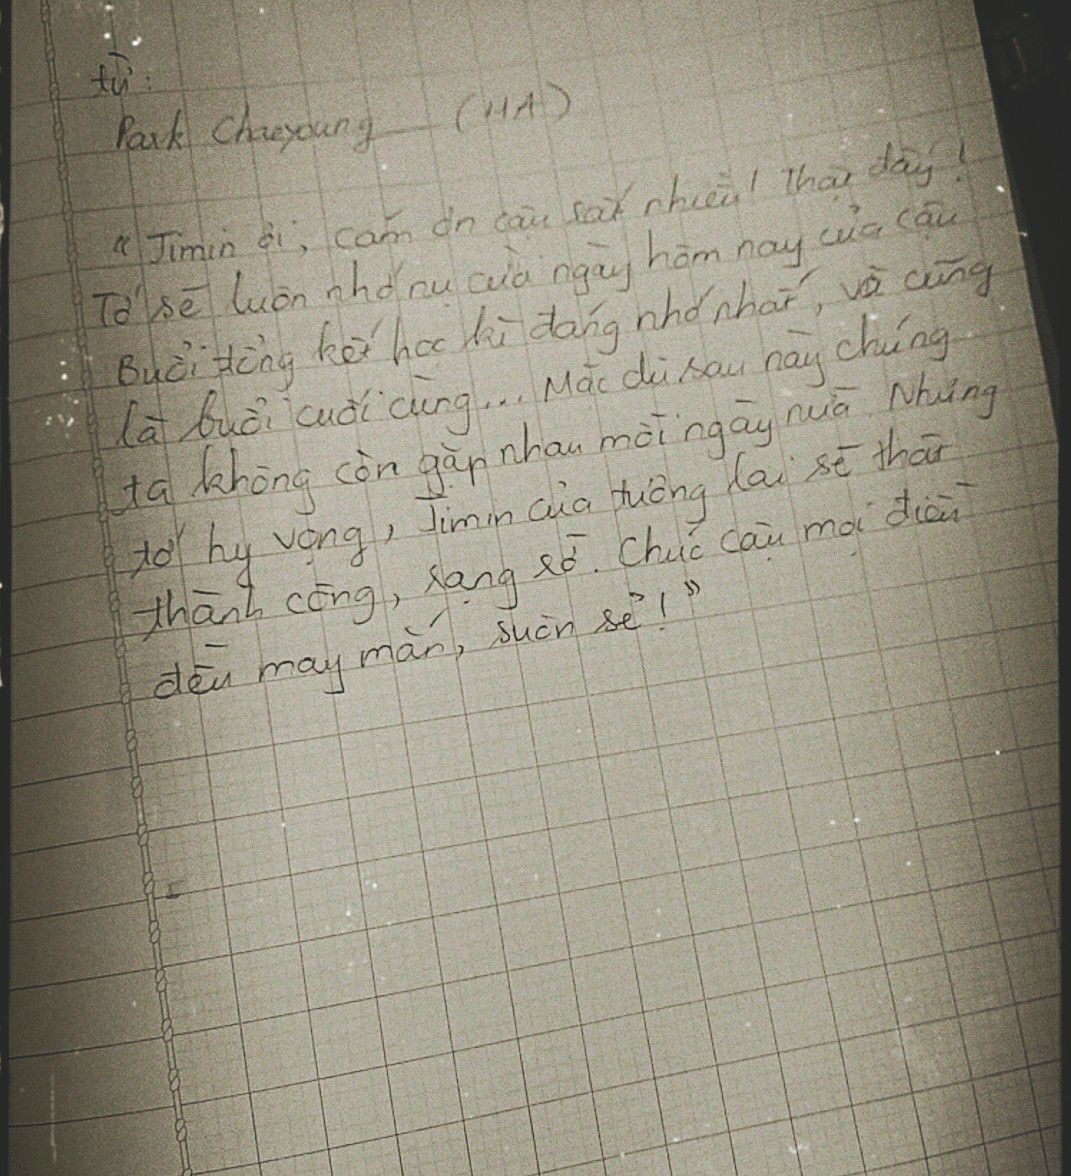 từ:
Park Chaeyoung (HA)
" Jimin ơi, cảm ơn cậu rất nhiều! Thật đấy!
Tớ sẽ luôn nhớ nụ cười ngày hôm nay của cậu
Buổi tổng kết học kì đáng nhớ nhất, và cũng
là buổi cuối cùng... Mặc dù sau này chúng
ta không còn gặp nhau mỗi ngày nữa. Nhưng
tớ hy vọng, Jimin của tương lai sẽ thật
thành công, rạng rỡ. Chúc cậu mọi điều
đều may mắn, suôn sẻ! "